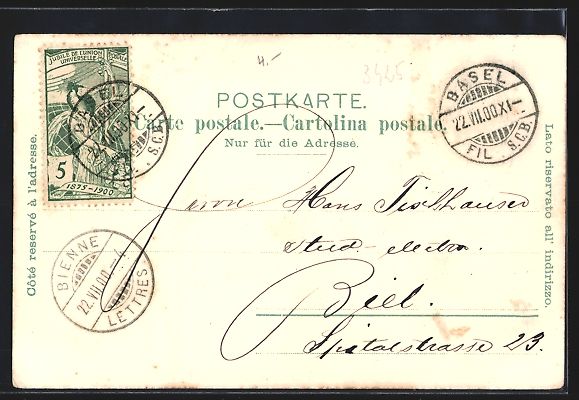 4.-
3425
JUBILÉ DE L'UNION POSTALE
UNIVERSELLE
5
1875-1900
BASEL
22.VII.00.XI-
FIL. S.C.B.
BASEL 1
22.VII.00.XI-
FIL. S.C.B.
POSTKARTE.
Carte postale.—Cartolina postale.
Nur für die Adresse.
Côté reservé à l'adresse.
Lato riservato all' indirizzo.
Herrn Hans Tischhauser
stud. electro.
Biel.
Spitalstrasse 23.
BIENNE
22.VII.00.-1
LETTRES